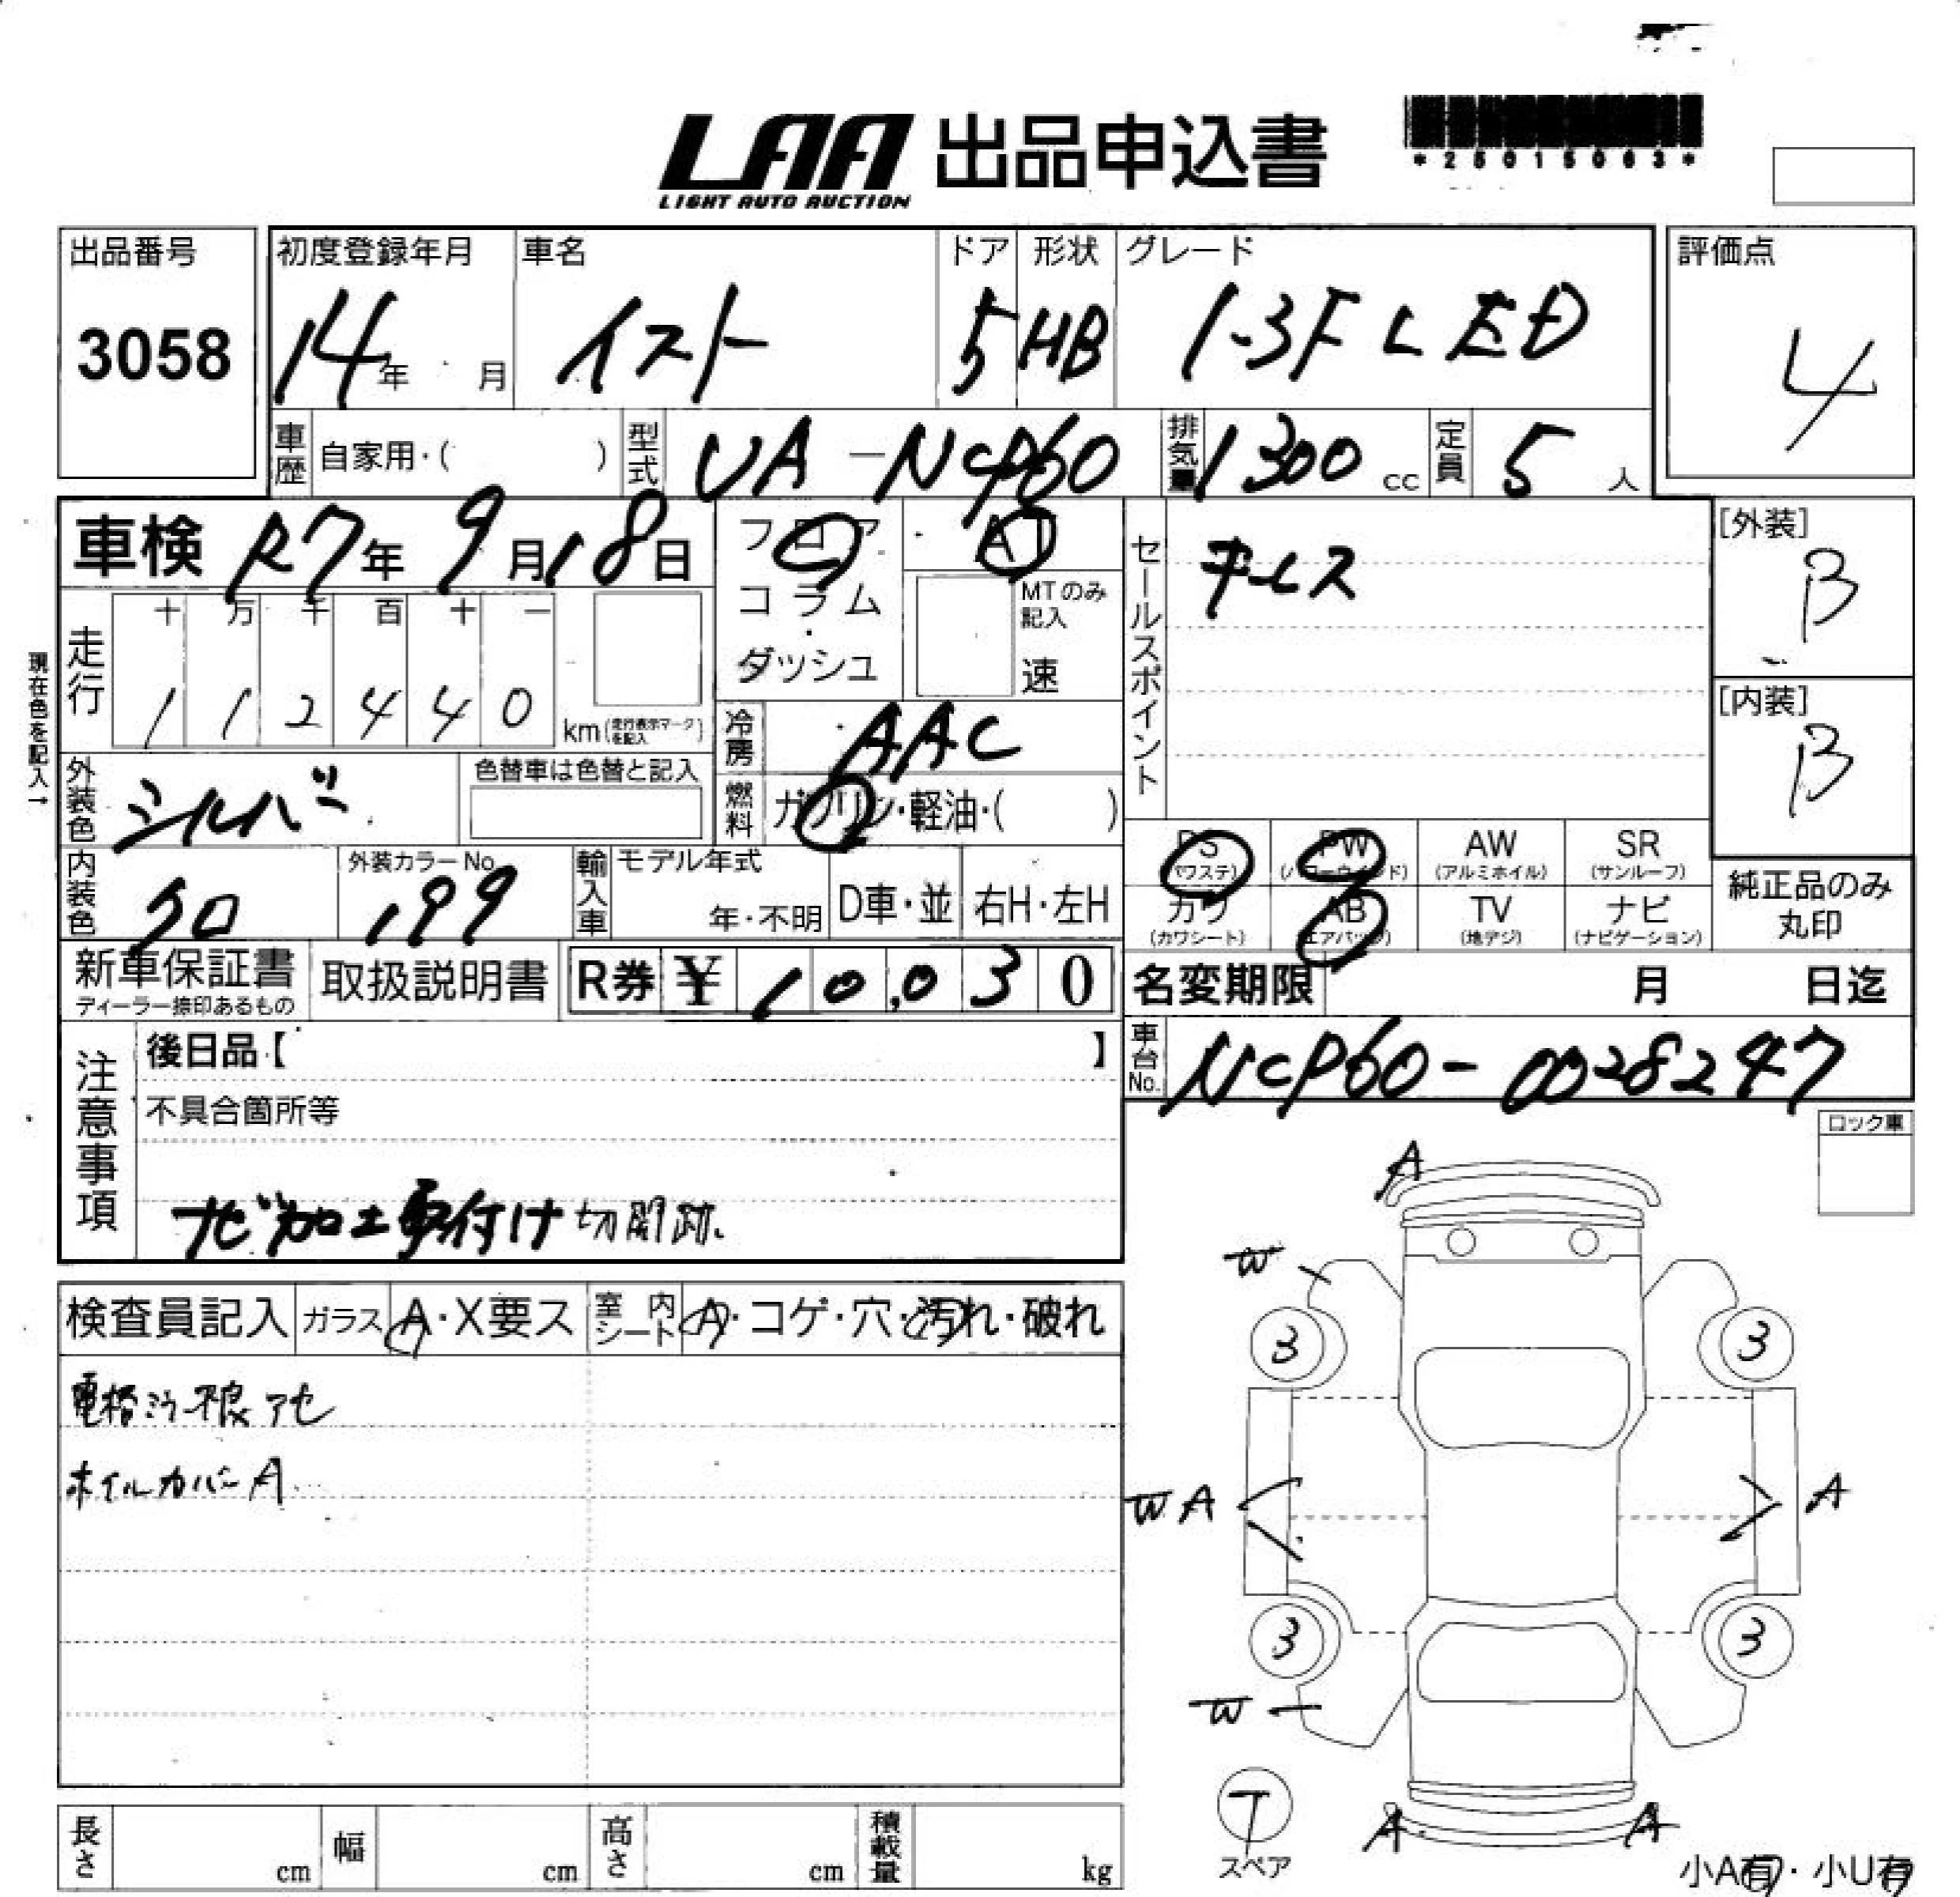 LAA 出品申込書
LIGHT AUTO AUCTION
*25015063*
出品番号
3058
初度登録年月
14年 月
車名
イスト
ドア
5
形状
HB
グレード
1.3F L ED
評価点
4
車歴 自家用・( )
型式 UA-NCP60
排気量 1300 cc
定員 5 人
車検 R7年 9月 18日
フロア
コラム
・
ダッシュ
AT
MTのみ
記入
速
セールスポイント
キーレス
[外装]
B
[内装]
B
現在色を記入→
走行
十 万 千 百 十 一
1 1 2 4 4 0
km (走行表示マークを記入)
冷房 AAC
外装色 シルバー
色替車は色替と記入
燃料 ガソリン・軽油・( )
内装色 クロ
外装カラーNo.
199
輸入車
モデル年式
年・不明
D車・並
右H・左H
PS
(パワステ)
PW
(パワーウインド)
AW
(アルミホイル)
SR
(サンルーフ)
カワ
(カワシート)
AB
(エアバッグ)
TV
(地デジ)
ナビ
(ナビゲーション)
純正品のみ
丸印
新車保証書
ディーラー捺印あるもの
取扱説明書
R券 ¥ 10,030
名変期限 月 日迄
車台No. NCP60-0028247
注意事項
後日品【 】
不具合箇所等
ナビ加工取付け 切開跡.
ロック車
検査員記入
ガラス A・X要ス
室内シート A・コゲ・穴・汚れ・破れ
電格ミラー不良 アセ
ホイルカバーA
A
W
3
3
W A
A
3
3
W
T
スペア
A
A
小A有・小U有
長さ cm
幅 cm
高さ cm
積載量 kg